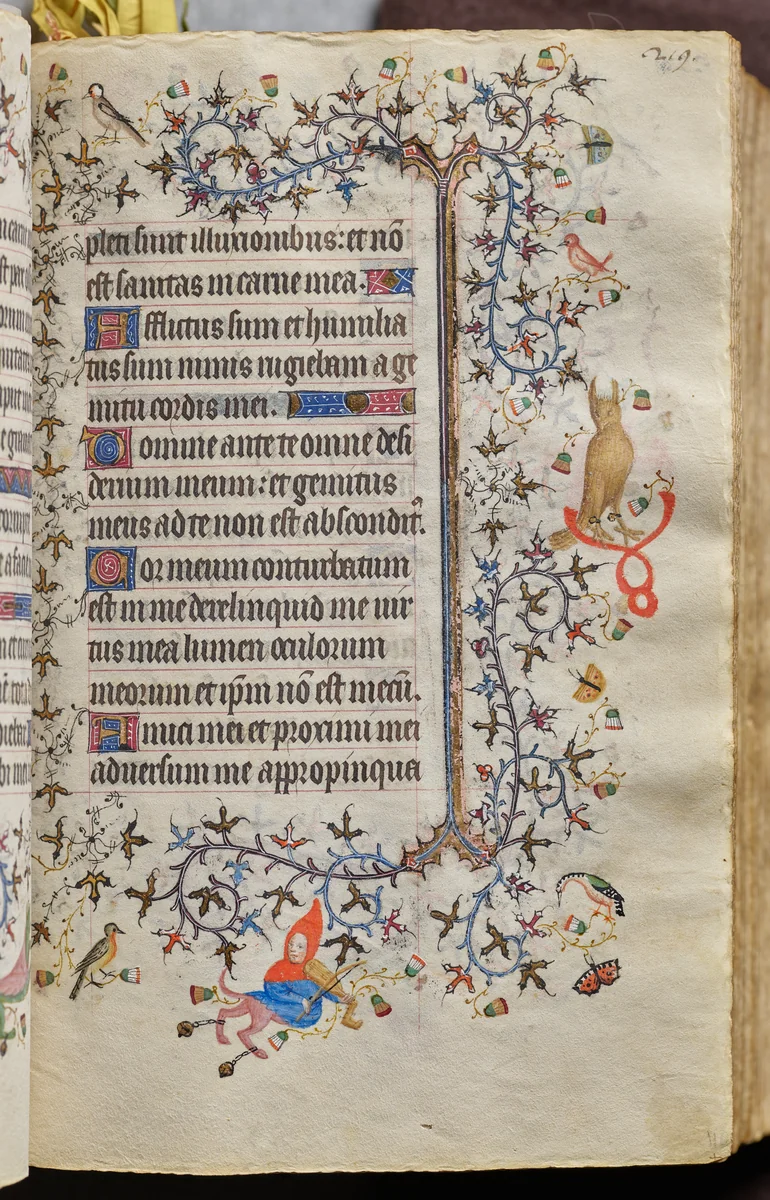 219.
pleti sunt illuxionibus: et nō
est sanitas in carne mea.
Afflictus sum et humilia
tus sum nimis rugiebam a ge
mitu cordis mei.
Domine ante te omne desi
derium meum: et gemitus
meus ad te non est abscondit᾽.
Cor meum conturbatum
est in me derelinquid me uir
tus mea lumen oculorum
meorum et ip̄m nō est mecū.
Amici mei et proximi mei
aduersum me appropinqua